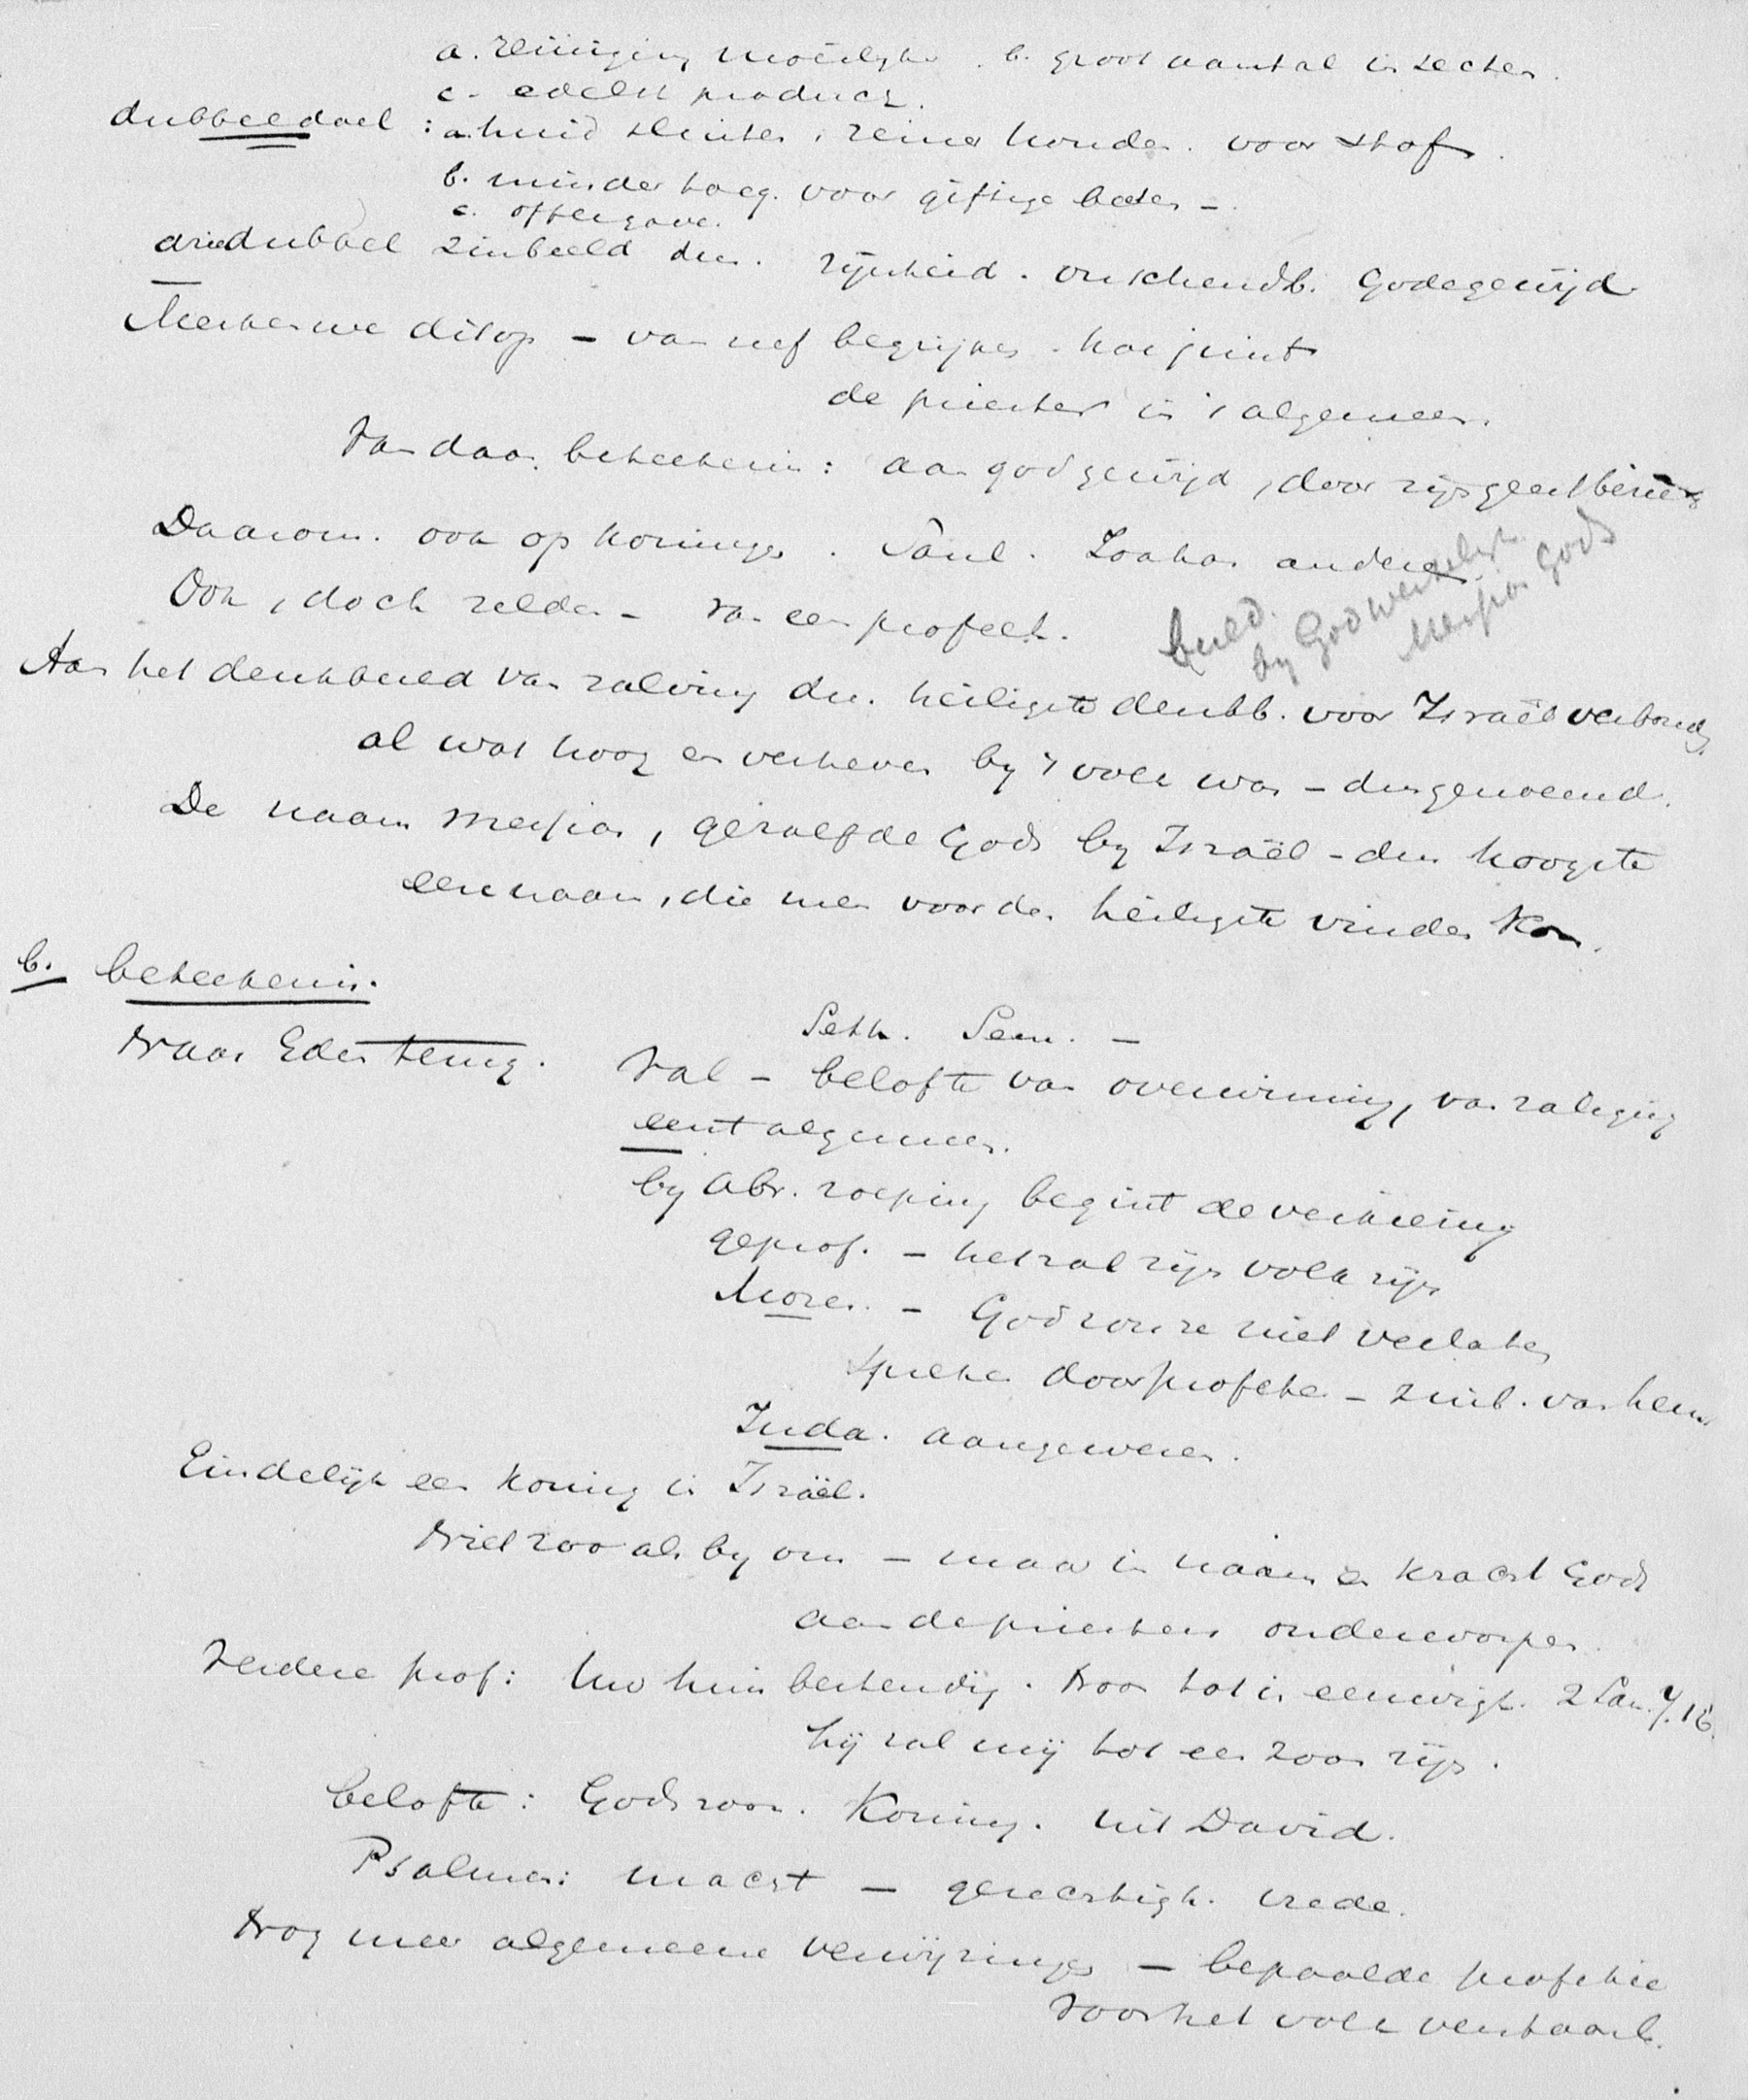 a. reiniging moeilijk. b. groot aantal insecten.
c. edelst product.
dubbel doel: a. huid sluiten, rein houden voor stof.
b. minder toeg. voor giftige beten –
c. offergave.
driedubbel zinbeeld dus. reinheid. onschendb. Godegewijd
Merken we dit op – van zelf begrijpen
de priester in 't algemeen.
Van daar. beteekenis: aan god gewijd, door zijn geest
Daarom. ook op koningen. Saul. andere
Ook, doch zelden – van een profeet.
beeld.
by God werkelijk
Messias Gods
Aan het denkbeeld van zalving dus. heiligste denkb. voor Israël verbond.
al wat hoog en verheven by 't volk was – dus genoemd.
De naam Messias, gezalfde Gods by Israël – dus hoogste
eerenaam, die men voor den heiligste vinden kon.
b. beteekenis.
Naar Eden terug. Seth. Sem. –
Val – belofte van overwinning, van zaliging
eerst algemeen.
by Abr. roeping begint de verkiezing
geprof. – het zal zijn volk zijn
Mozes. – God zou ze niet verlaten
spreken door profeten – zinb. van hem
Juda. aangewezen.
Eindelijk een koning in Israël.
Niet zoo als by ons – maar in naam en kracht Gods
aan de priesters onderworpen.
Verdere prof: Uw huis bestendig. troon tot in eeuwigh. 2 Sam. 7.16.
hij zal mij tot een zoon zijn.
belofte: Gods zoon. Koning. uit David.
Psalmen: macht – gerechtigh. vrede.
Nog meer algemeene verwijzingen – bepaalde profetie
voor het volk verstaanb.